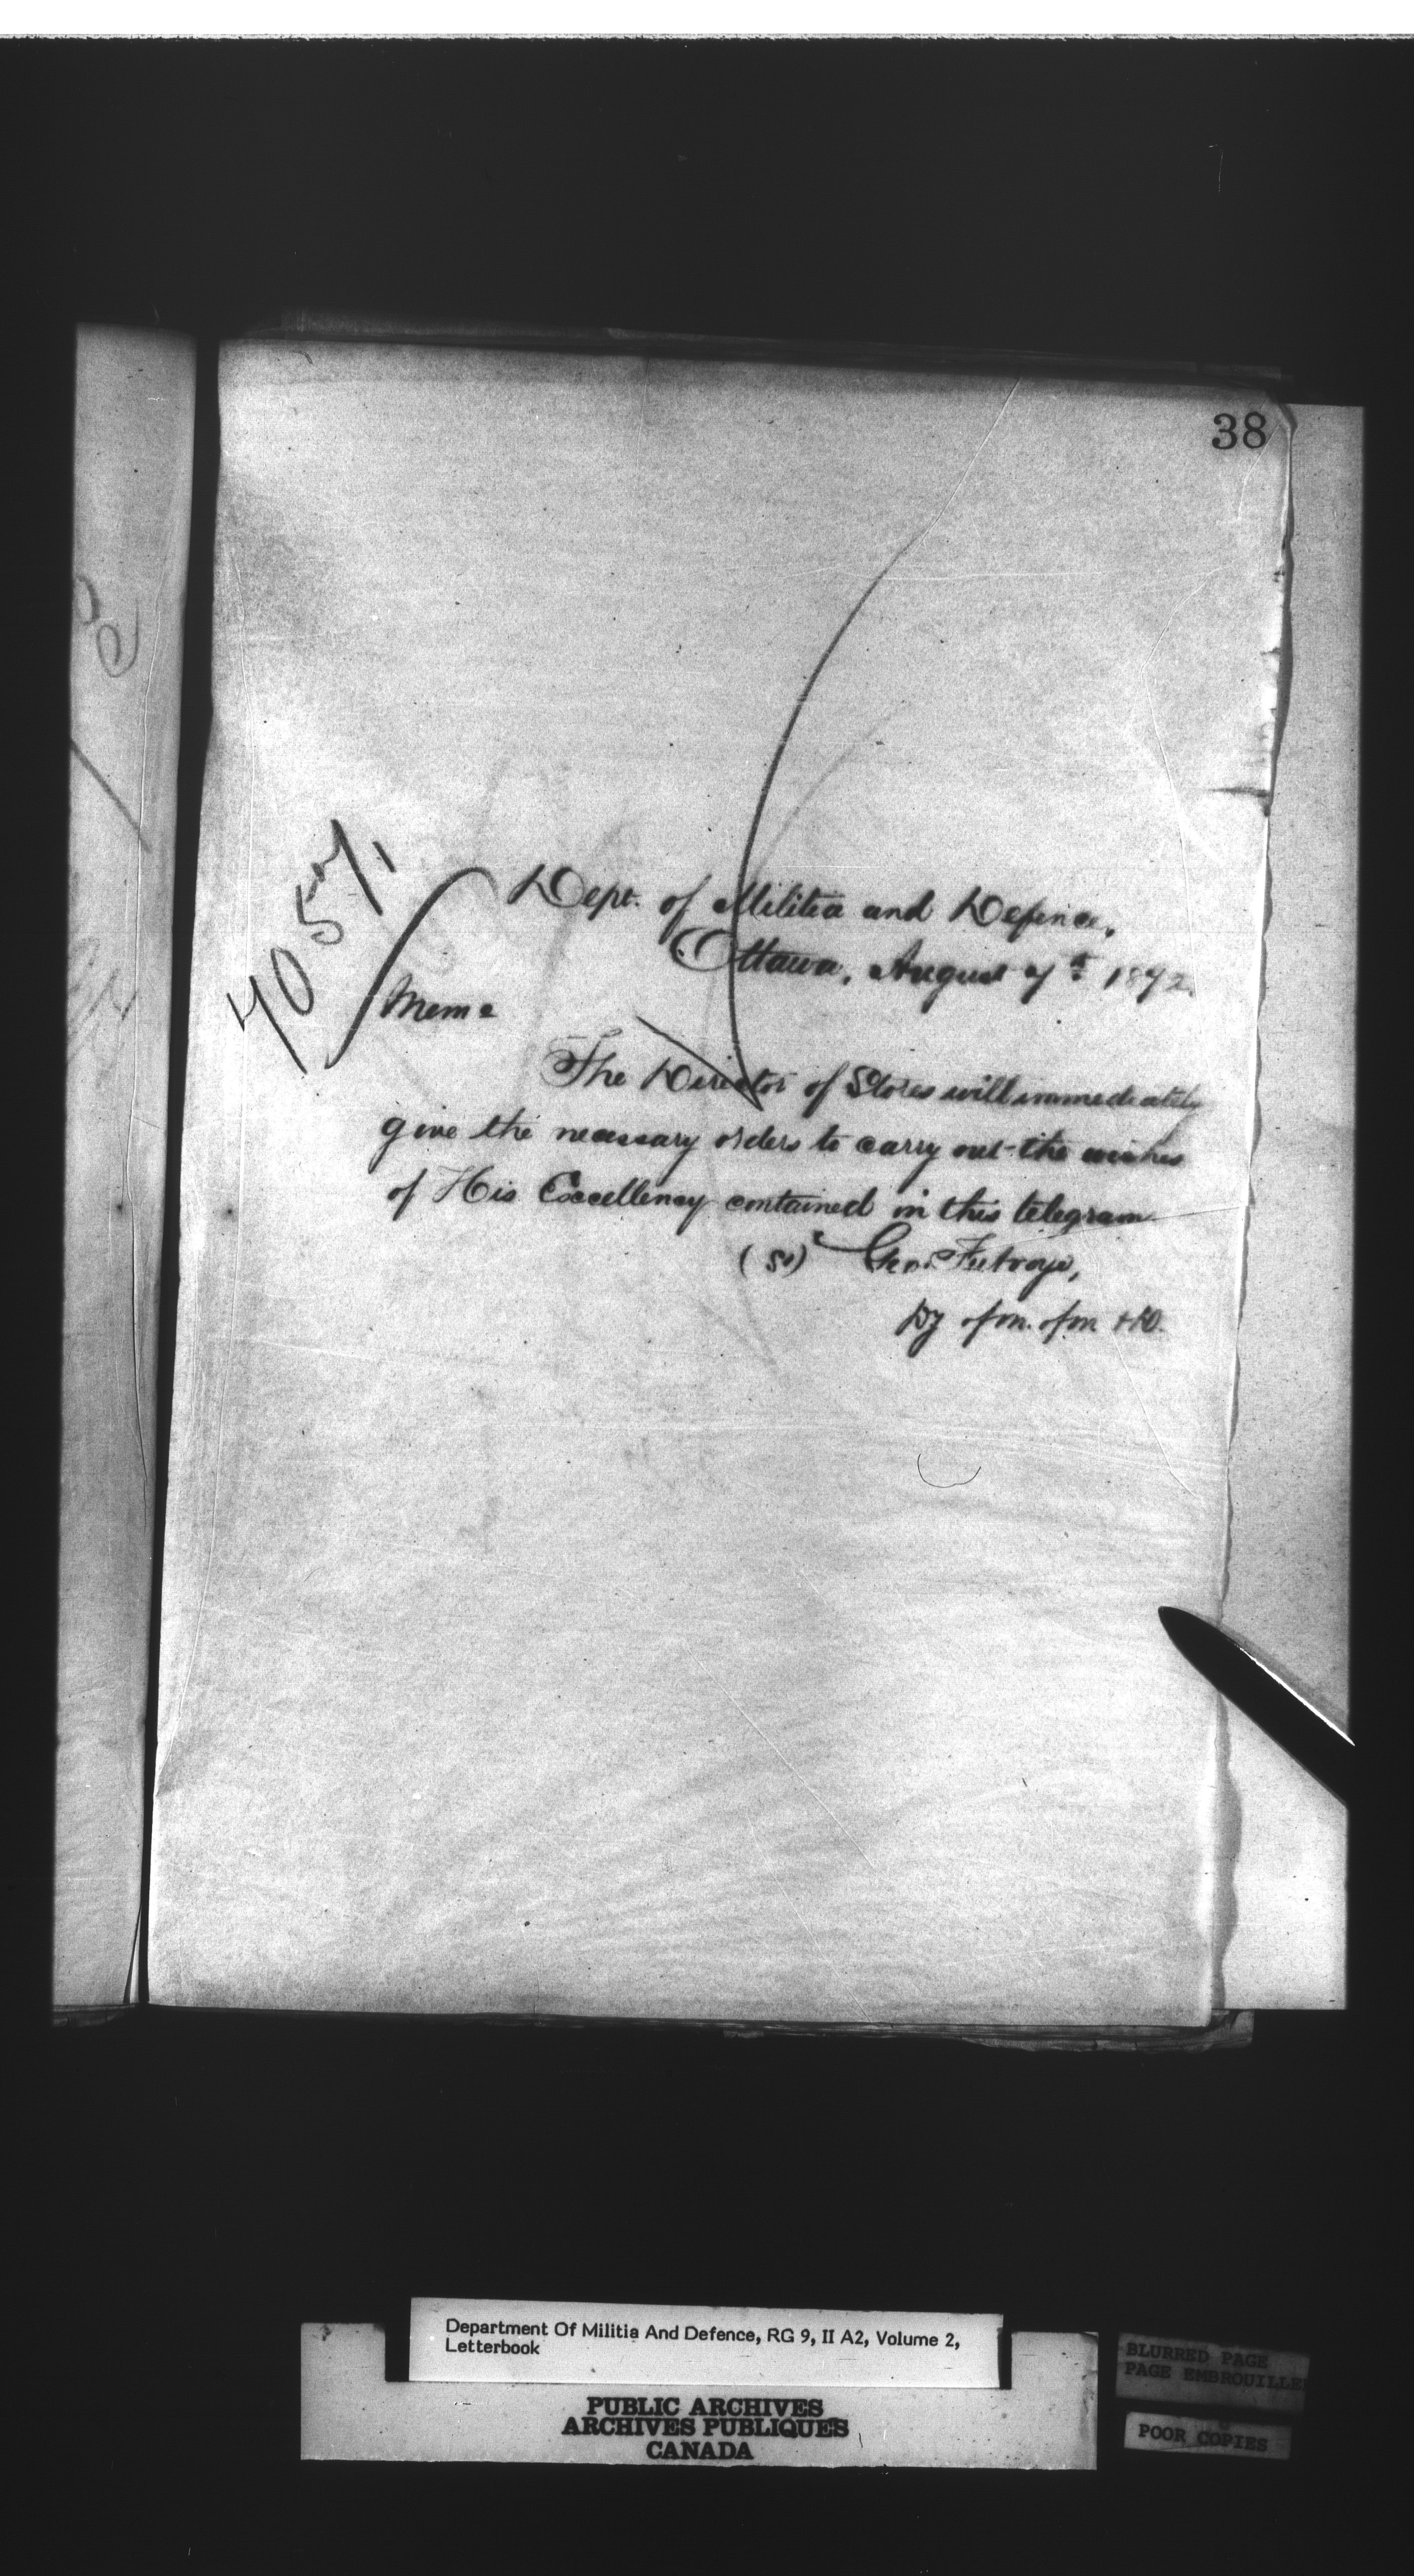 38
Dept. of Militia and Defence,
Ottawa, August 7th 1872.
Memo
The Director of Stores will immediately
give the necessary orders to carry out the wishes
of His Excellency contained in this telegram
(Sd) Geo. Futvoye,
Dy of M. of M & D.
Department Of Militia And Defence, RG 9, II A2, Volume 2,
Letterbook
PUBLIC ARCHIVES
ARCHIVES PUBLIQUES
CANADA
BLURRED PAGE
PAGE EMBROUILLE
POOR COPIES